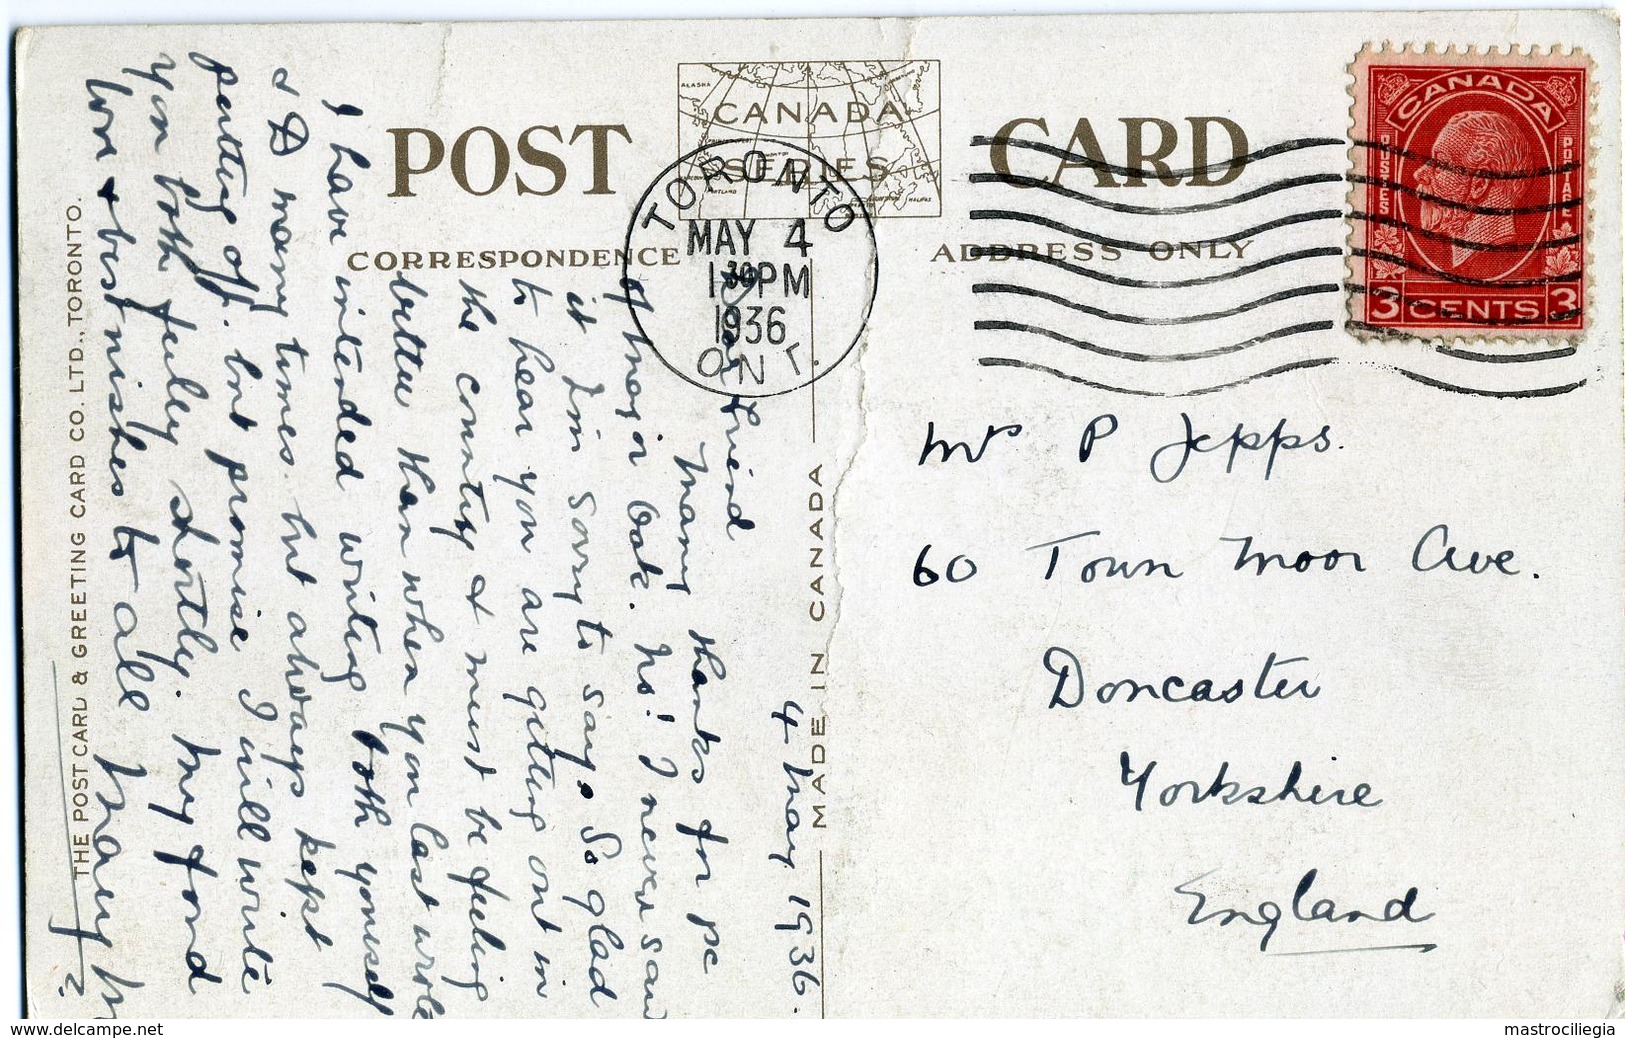 POST CARD
CANADA
SERIES
ALASKA
PORTLAND
HALIFAX
CORRESPONDENCE
ADDRESS ONLY
TORONTO
MAY 4
1 30 PM
1936
ONT.
CANADA
POSTES POSTAGE
3 CENTS 3
MADE IN CANADA
THE POST CARD & GREETING CARD CO. LTD., TORONTO.
4 May 1936.
My Dear Friend
Many thanks for pc
of Major Oak. No! I never saw
it I'm sorry to say. So glad
to hear you are getting out in
the country & must be feeling
better than when you last wrote
I have intended writing both yourself
& D many times. but always kept
putting off. but promise I will write
you both fully shortly. My fond
love & best wishes to all Mary M
?
Mrs P Jepps.
60 Town Moor Ave.
Doncaster
Yorkshire
England
www.delcampe.net
mastrociliegia